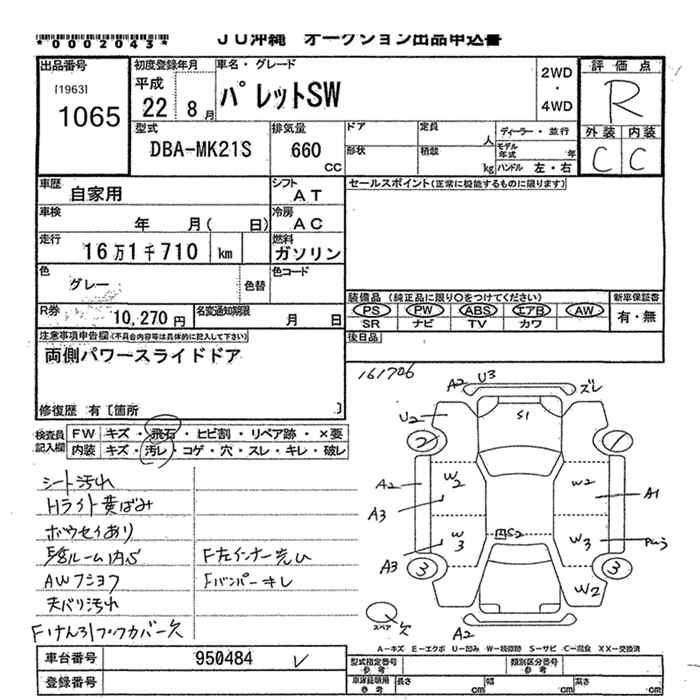 *0002043*
JU沖縄 オークション出品申込書
出品番号
[1963]
1065
初度登録年月
平成
22年 8月
車名・グレード
パレットSW
2WD
・
4WD
評価点
R
外装 内装
C C
型式
DBA-MK21S
排気量
660
CC
ドア
形状
定員
人
積載
kg
ディーラー・並行
モデル年式 年
ハンドル 左・右
車歴
自家用
シフト
AT
セールスポイント(正常に機能するものに限ります)
車検
年 月( 日)
冷房
AC
走行
16万1千710 km
燃料
ガソリン
色
グレー
色替
色コード
R券
10,270円
名変通知期限
月 日
装備品 (純正品に限り○をつけてください)
新車保証書
PS PW ABS エアB AW
有・無
SR ナビ TV カワ
後日品
注意事項申告欄(不具合内容等は具体的に記入して下さい)
両側パワースライドドア
修復歴 有〔箇所 〕
検査員記入欄
FW キズ・飛石・ヒビ割・リペア跡・×要
内装 キズ・汚レ・コゲ・穴・スレ・キレ・破レ
シート汚れ
Hライト黄ばみ
ボウセイあり
AWフショク
天バリ汚れ
Fバンパーキレ
161706
A2 U3
ズレ
S1
U2
2
1
A2
W2
W2
A1
A3
W3
W3
A3
3
3
W2
スペア
欠
A2
A-キズ E-エクボ U-凹み W-補修跡 S-サビ C-腐食 XX-交換済
車台番号
950484
登録番号
型式指定番号
参考
類別区分番号
参考
車庫証明用
参考
長さ cm 幅 cm 高さ cm